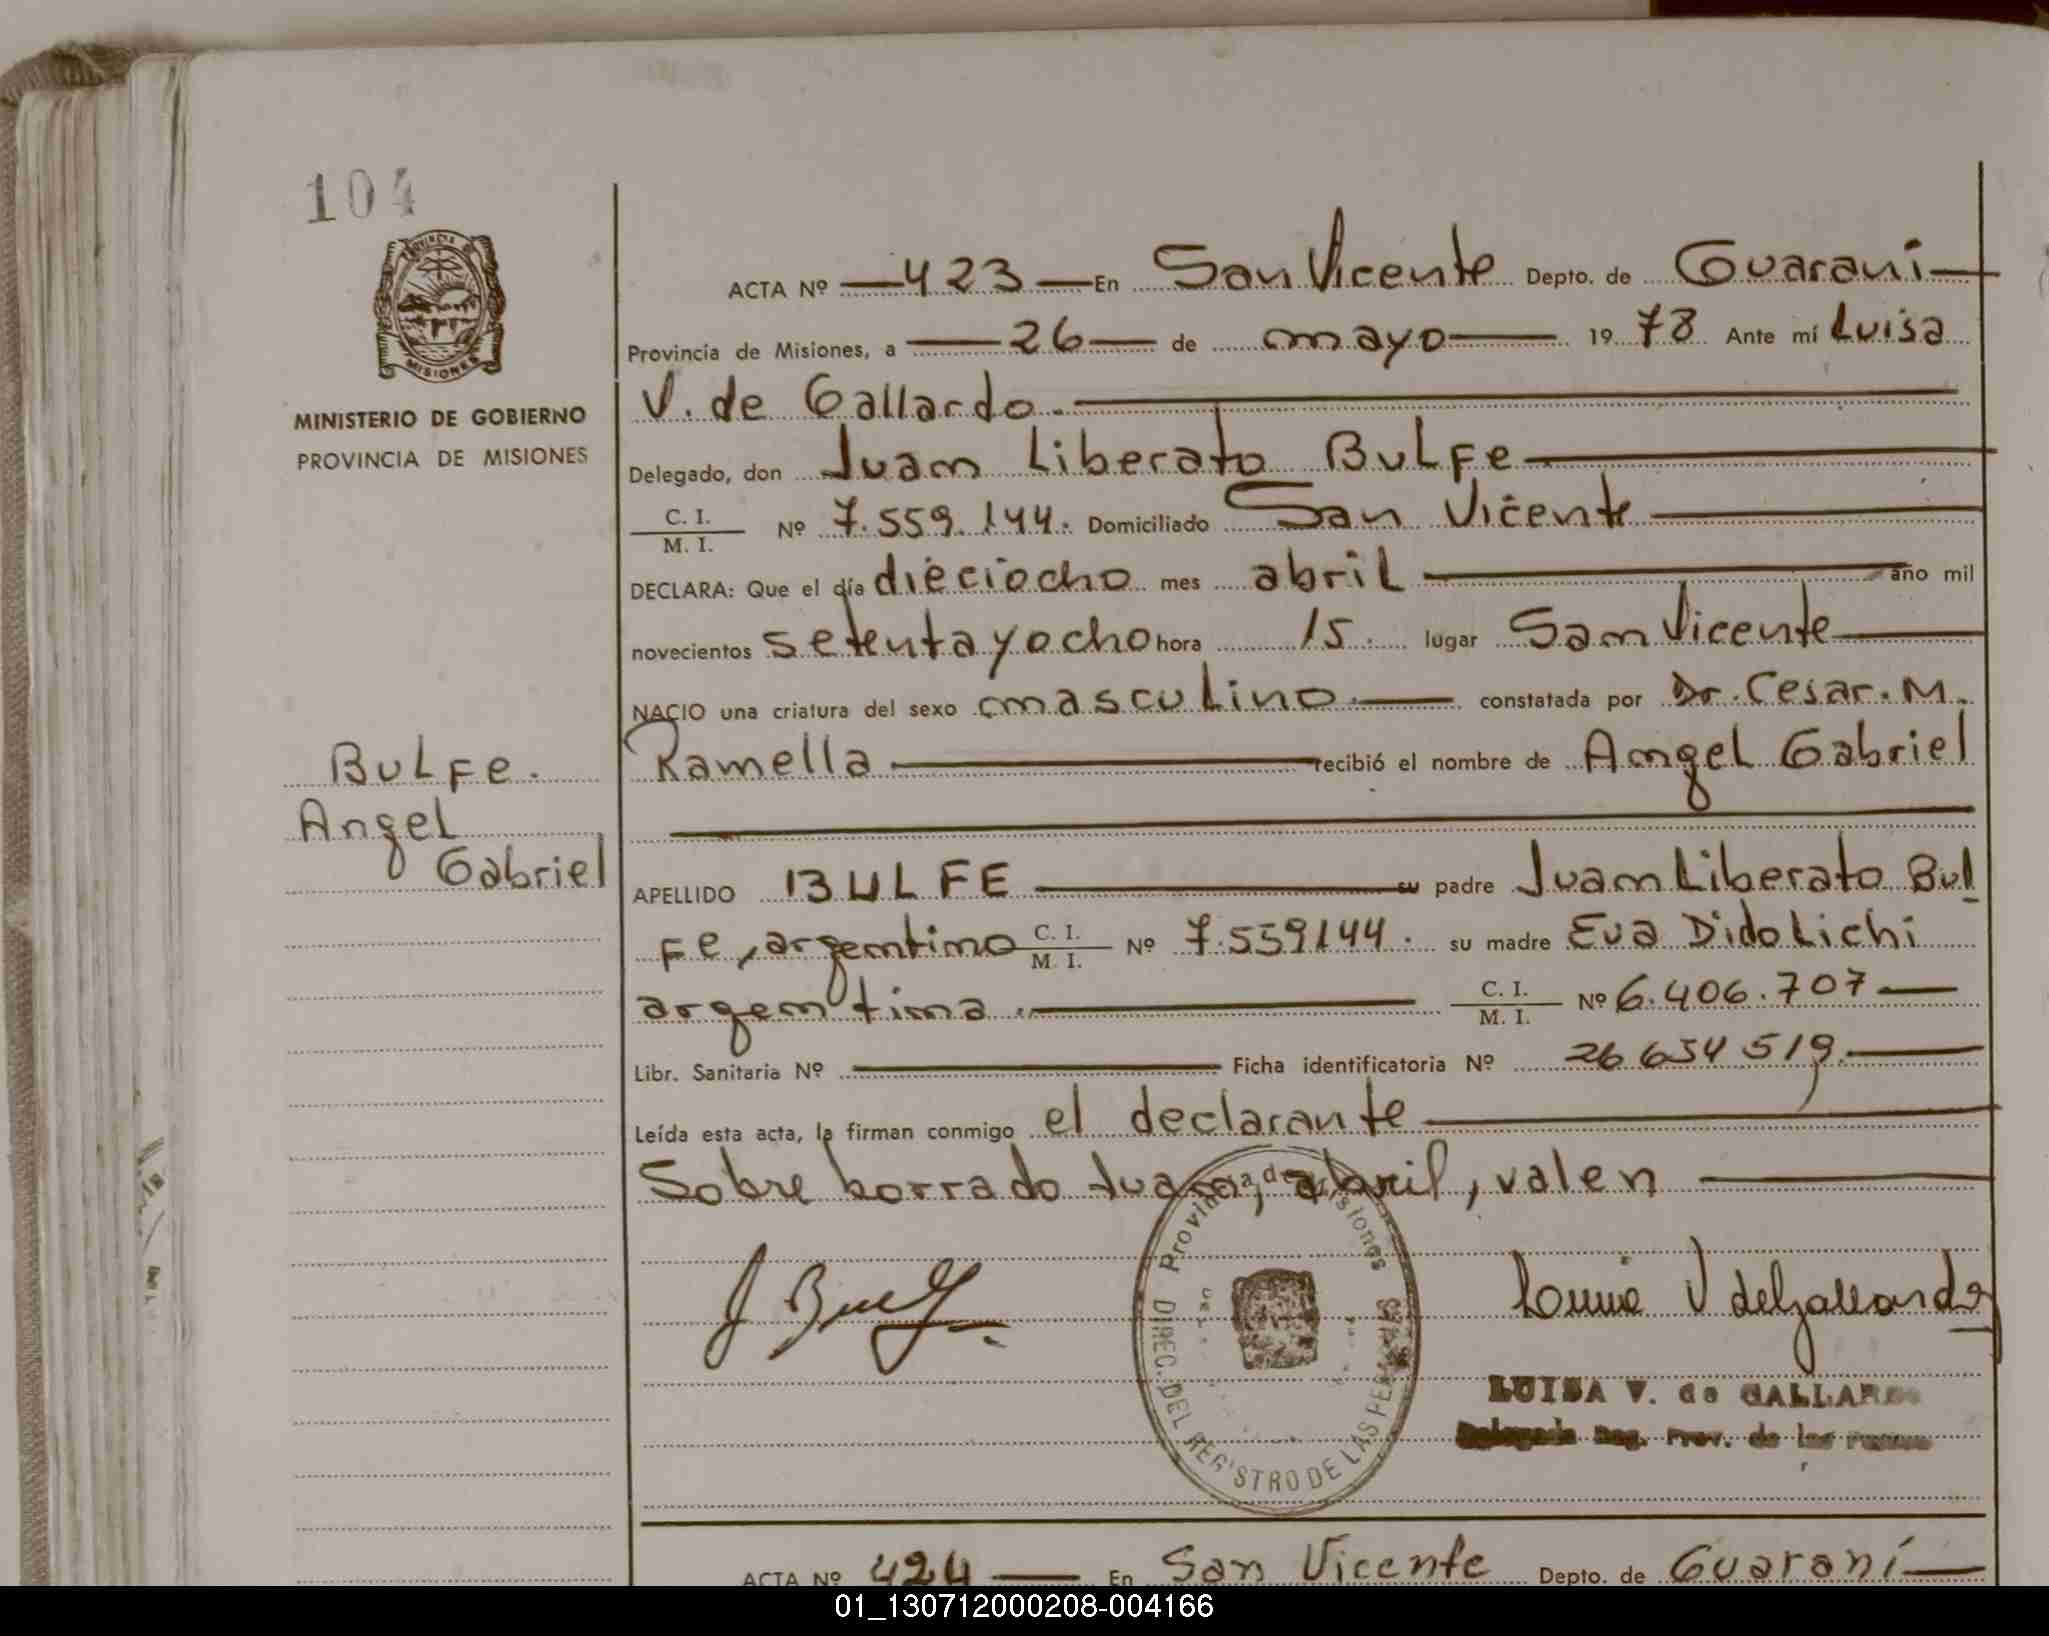 104
PROVINCIA DE
MISIONES
MINISTERIO DE GOBIERNO
PROVINCIA DE MISIONES
ACTA Nº 423 En San Vicente Depto. de Guaraní
Provincia de Misiones, a 26 de mayo 1978 Ante mí Luisa
V. de Gallardo.
Delegado, don Juam Liberato BuLFe
C. I. / M. I. Nº 7.559.144. Domiciliado San Vicente
DECLARA: Que el día dieciocho mes abril año mil
novecientos setenta y ocho hora 15. lugar Sam Vicente
NACIO una criatura del sexo masculino. constatada por Dr. Cesar. M.
Ramella recibió el nombre de Amgel Gabriel
BuLFe.
Angel
Gabriel
APELLIDO BULFE su padre Juam Liberato Bul
Fe, argemtimo C. I. / M. I. Nº 7.559144. su madre Eva Didolichi
argemtima. C. I. / M. I. Nº 6.406.707
Libr. Sanitaria Nº Ficha identificatoria Nº 26 654 519.
Leída esta acta, la firman conmigo el declarante
Sobre borrado abril, valen
Provincia de Misiones
DIREC. DEL REGISTRO DE LAS PERSONAS
LUISA V. de GALLARDO
Delegada Reg. Prov. de las
ACTA Nº 424 En San Vicente Depto. de Guaraní
01_130712000208-004166